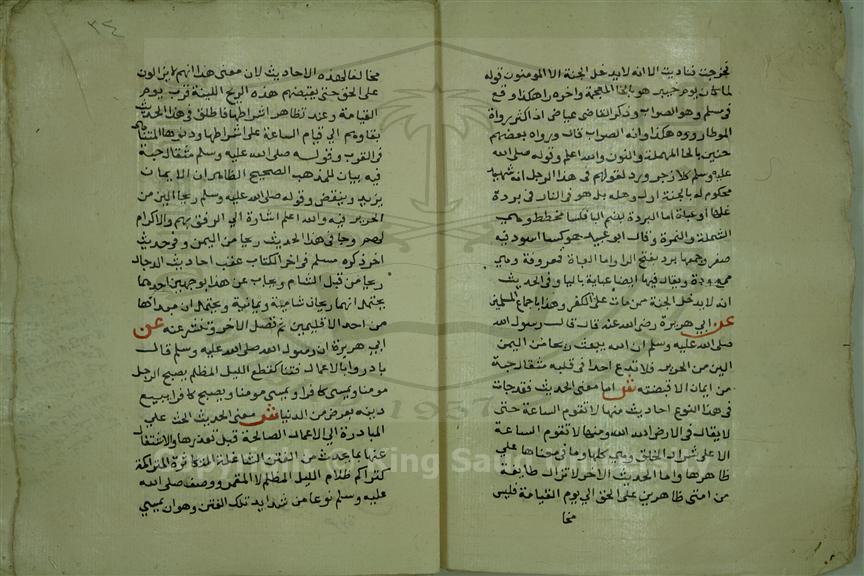 فخرجت فناديت الا انه لا يدخل الجنة الا المومنون قوله
لما كان يوم خيبر هو بالخا المعجمة واخره را هكذا وقع
في مسلم وهو الصواب وذكر القاضي عياض ان اكثر رواة
الموطا رووه هكذا وانه الصواب قال ورواه بعضهم
حنين بالحا المهملة والنون والله اعلم وقوله صلى الله
عليه وسلم كلا زجر ورد لقولهم في هذا الرجل انه شهيد
محكوم له بالجنة اول وهله بل هو في النار في بردة
غلها او عباة اما البردة بضم البا فكسا مخطط وهي
الشملة والنمرة وقال ابو عبيد هو كسا اسود فيه
صغر وجمعها برد بفتح الرا واما العباة فمعروفة وهي
ممدودة ويقال فيها ايضا عباية باليا وفي الحديث
انه لا يدخل الجنة من مات على الكفر وهذا باجماع المسلمين
عن ابي هريرة رضي الله عنه قال قال رسول الله
صلى الله عليه وسلم ان الله يبعث ريحا من اليمن
الين من الحرير فلا تدع احدا في قلبه مثقال حبة
من ايمان الا قبضته ش اما معنى الحديث فقد جات
في هذا النوع احاديث منها لا تقوم الساعة حتى
لا يقال في الارض الله الله ومنها لا تقوم الساعة
الا على شرار الخلق وهي كلها وما في معناها على
ظاهرها واما الحديث الاخر لا تزال طايفة
من امتي ظاهرين على الحق الى يوم القيامة فليس
مخا
٣٤
مخالفا لهذه الاحاديث لان معنى هذا انهم لا يزالون
على الحق حتى يقبضهم هذه الريح اللينة قرب يوم
القيامة وعند تظاهر اشراطها فاطلق في هذا الحديث
بقاوهم الى قيام الساعة على اشراطها ودنوها المتناهي
في القرب وقوله صلى الله عليه وسلم مثقال حبة
فيه بيان للمذهب الصحيح الظاهر ان الايمان
يزيد وينقص وقوله صلى الله عليه وسلم ريحا الين من
الحرير فيه والله اعلم اشارة الى الرفق بهم والاكرام
لهم وجا في هذا الحديث ريحا من اليمن وفي حديث
اخر ذكره مسلم في اخر الكتاب عقب احاديث الدجال
ريحا من قبل الشام ويجاب عن هذا بوجهين احدهما
يحتمل انهما ريحان شامية ويمانية ويحتمل ان مبداها
من احد الاقليمين ثم تصل الاخر وتنتشر عنه عن
ابي هريرة ان رسول الله صلى الله عليه وسلم قال
بادروا بالاعمال فتنا كقطع الليل المظلم يصبح الرجل
مومنا ويمسي كافرا ويمسي مومنا ويصبح كافرا يبيع
دينه بعرض من الدنيا ش معنى الحديث الحث على
المبادرة الى الاعمال الصالحة قبل تعذرها والاشتغال
عنها بما يحدث من الفتن الشاغلة المتكاثرة المتراكمة
كتراكم ظلام الليل المظلم لا المقمر ووصف صلى الله
عليه وسلم نوعا من شدايد تلك الفتن وهو ان يمسي
1957